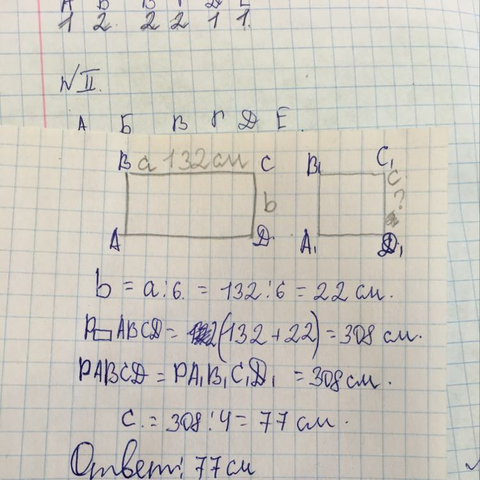 1 2 2 2 1 1
№ II.
А Б В Г Д Е.
B a 132 см C B₁ C₁
b c ?
A D A₁ D₁
b = a:6. = 132:6 = 22 см.
P▭ABCD = 2(132+22) = 308 см.
PABCD = PA₁B₁C₁D₁ = 308 см.
C. = 308:4 = 77 см.
Ответ: 77 см